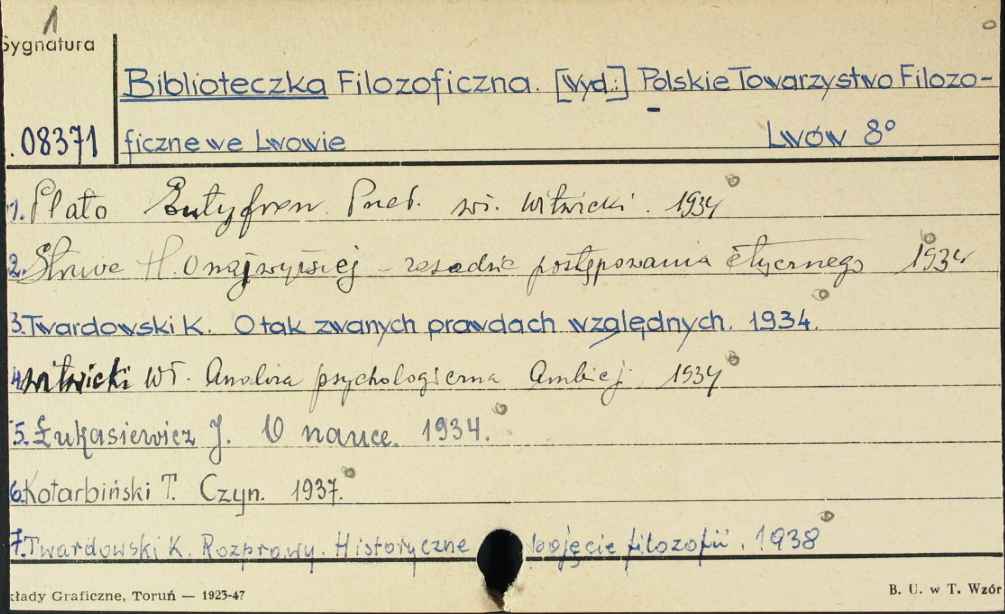 1
Sygnatura
Biblioteczka Filozoficzna. [Wyd.:] Polskie Towarzystwo Filozo-
08371 ficzne we Lwowie Lwów 8°
1. Plato Eutyfron. Wł. Witwicki. 1934
2. Struve H. O najwyższej zasadzie postępowania etycznego 1934
3. Twardowski K. O tak zwanych prawdach względnych. 1934.
4. Witwicki Wł. Analiza psychologiczna Ambicji 1934
5. Łukasiewicz J. O nauce. 1934.
6. Kotarbiński T. Czyn. 1937.
7. Twardowski K. Rozprawy. Historyczne pojęcie filozofii. 1938
kłady Graficzne, Toruń — 1925-47
B. U. w T. Wzór